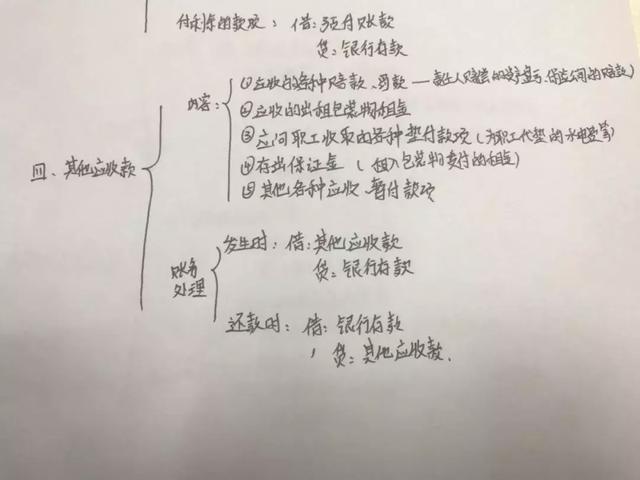 付剩余的款项：借：预付账款
贷：银行存款
四、其他应收款
内容：
①应收的各种赔款、罚款——责任人赔偿的财产盘亏、保险公司的赔款）
②应收的出租包装物租金
③应向职工收取的各种垫付款项（为职工代垫的水电费等）
④存出保证金（租入包装物支付的租金）
⑤其他各种应收、暂付款项
账务处理
发生时：借：其他应收款
贷：银行存款
还款时：借：银行存款
贷：其他应收款.